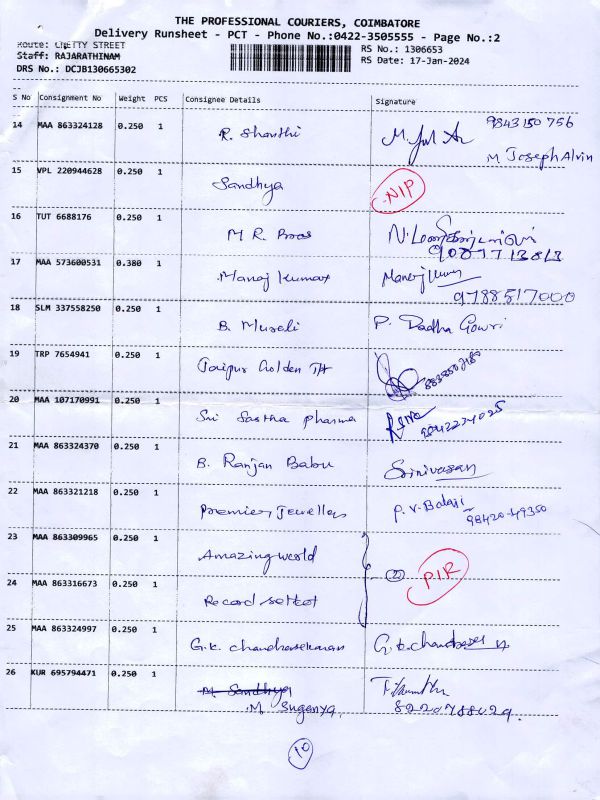 THE PROFESSIONAL COURIERS, COIMBATORE
Delivery Runsheet - PCT - Phone No.:0422-3505555 - Page No.:2
Route: CHETTY STREET
RS No.: 1306653
Staff: RAJARATHINAM
RS Date: 17-Jan-2024
DRS No.: DCJB130665302
S No Consignment No Weight PCS Consignee Details Signature
14 MAA 863324128 0.250 1 R. Shanthi 9843150756
M Joseph Alvin
15 VPL 220944628 0.250 1 Sandhya NIP
16 TUT 6688176 0.250 1 M R. Bros
17 MAA 573600531 0.380 1 Manoj Kumar Manoj Kumar
9788517000
18 SLM 337558250 0.250 1 B. Murali P. Radha Gowri
19 TRP 7654941 0.250 1 Jaipur Golden
20 MAA 107170991 0.250 1 Sri Sastha pharma
21 MAA 863324370 0.250 1 B. Ranjan Babu Srinivasan
22 MAA 863321218 0.250 1 Premier Jewellers P. V. Balaji
98420-49350
23 MAA 863309965 0.250 1 Amazing world
(2) PIR
24 MAA 863316673 0.250 1 Record
25 MAA 863324997 0.250 1 G.K. chandrasekaran G.K. chandrasekaran
26 KUR 695794471 0.250 1 M. Sandhya
M. Suganya 8220788029
10